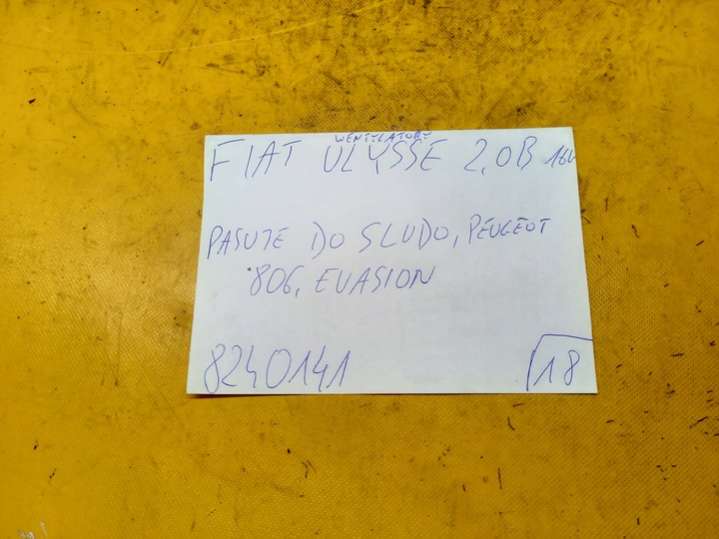 WENTYLATORY
FIAT ULYSSE 2.0B 16V
PASUJE DO SCUDO, PEUGEOT
806, EVASION
8240141
18